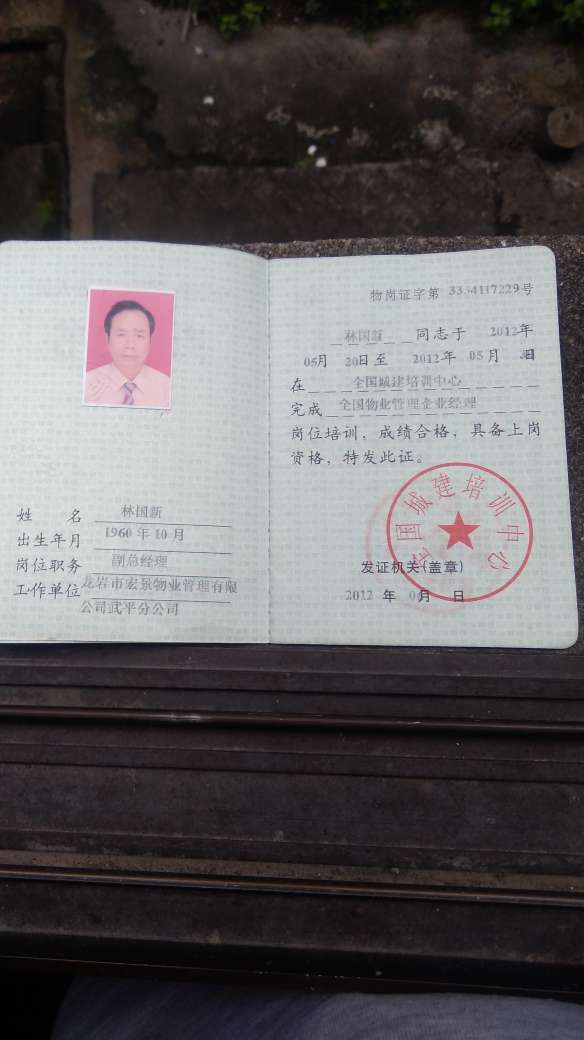 姓 名 林国新
出生年月 1960年10月
岗位职务 副总经理
工作单位 龙岩市宏景物业管理有限
公司武平分公司
物岗证字第 号
林国新 同志于 2012年
05月 20日至 2012年 05月 日
在 全国城建培训中心
完成 全国物业管理企业经理
岗位培训，成绩合格，具备上岗
资格，特发此证。
全国城建培训中心
发证机关(盖章)
2012 年 月 日